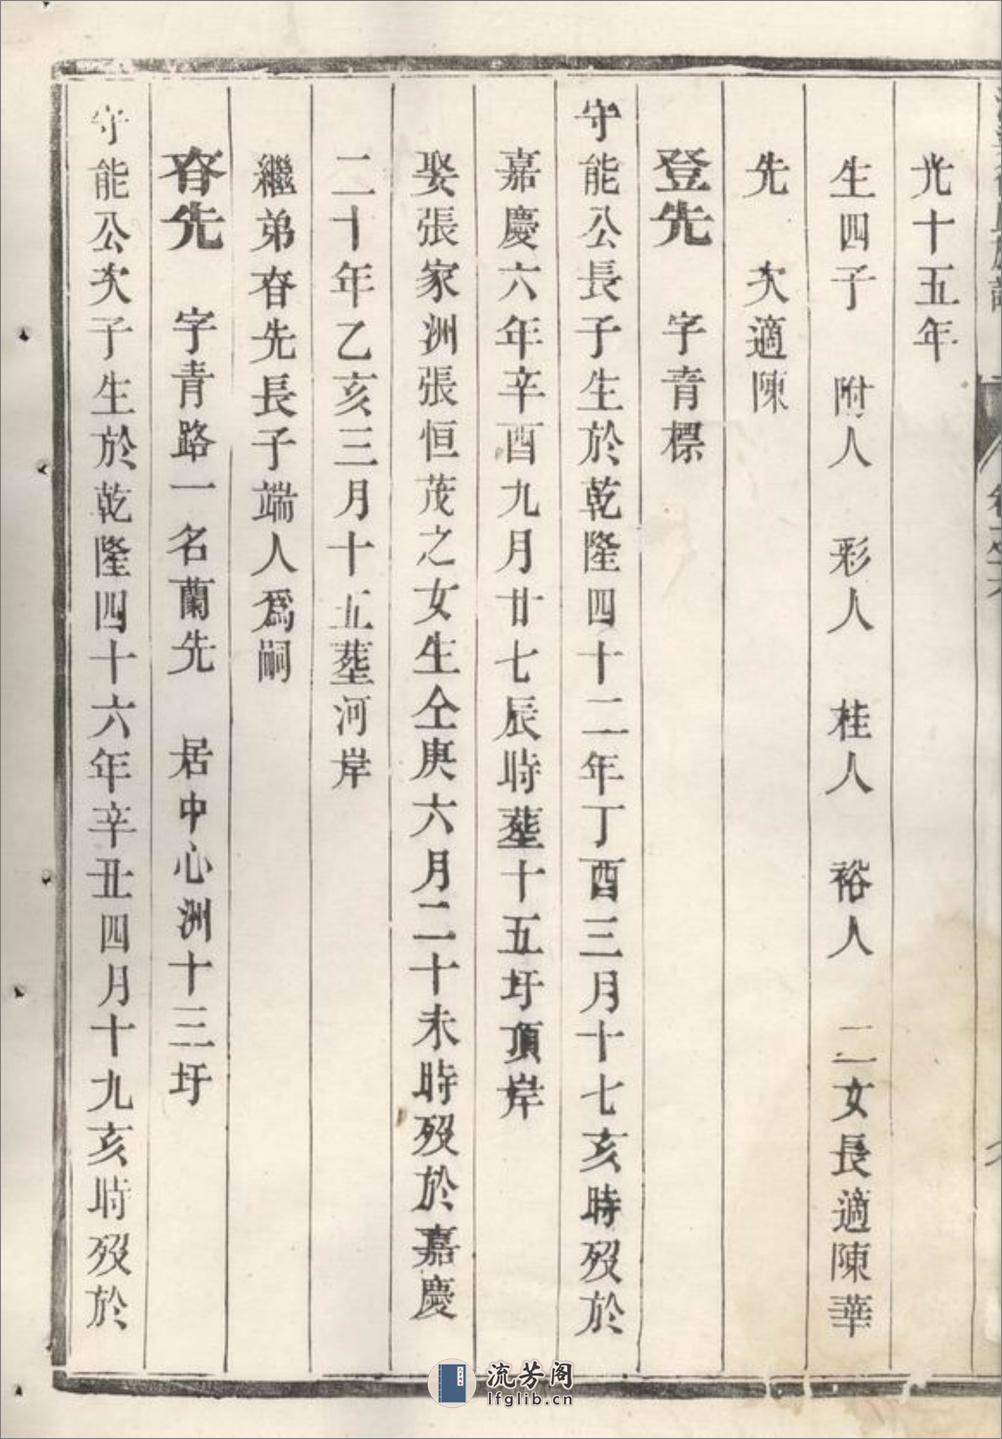 光十五年
生四子 附人 彩人 桂人 裕人 二女長適陳華
先 次適陳
登先 字青標
守能公長子生於乾隆四十二年丁酉三月十七亥時歿於
嘉慶六年辛酉九月廿七辰時塟十五圩頂岸
娶張家洲張恒茂之女生仝庚六月二十未時歿於嘉慶
二十年乙亥三月十五塟河岸
繼弟春先長子端人爲嗣
春先 字青路一名蘭先 居中心洲十三圩
守能公次子生於乾隆四十六年辛丑四月十九亥時歿於
流芳阁
lfglib.cn